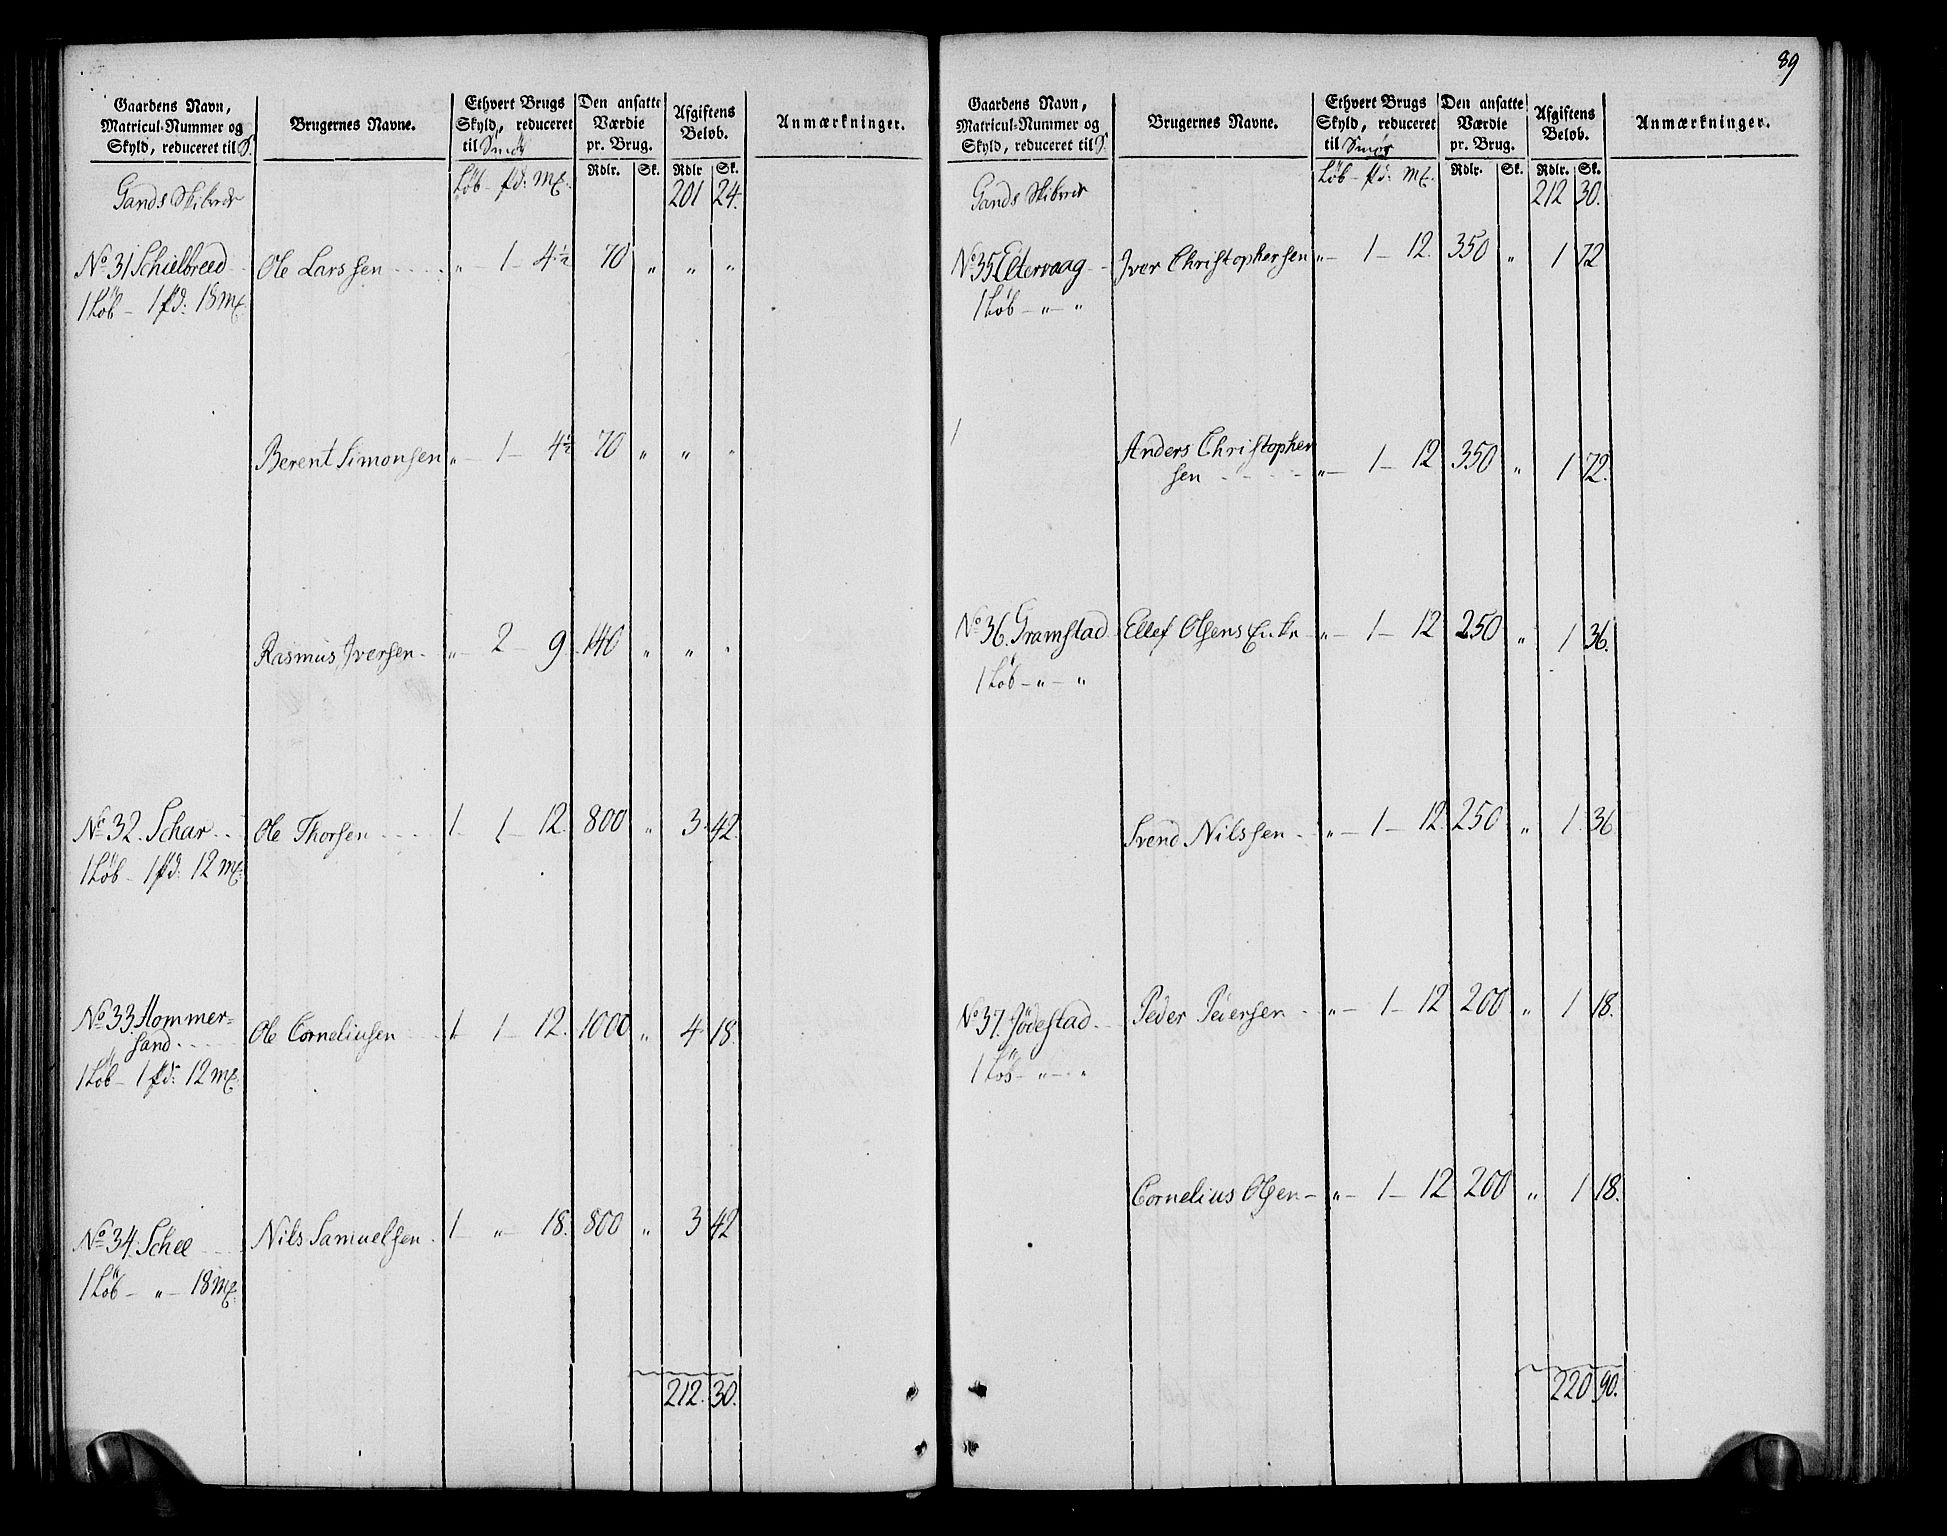 Gaardens Navn, Matricul-Nummer og Skyld, reduceret til S. | Brugernes Navne. | Ethvert Brugs Skyld, reduceret til Smør | Den ansatte Værdie pr. Brug. | Afgiftens Beløb. | Anmærkninger.
Löb - pd: mk. | Rdlr. | Sk. | Rdlr | Sk.
Gands Skibrede 201 24.
No 31 Schielbreed Ole Larssen " 1 4½ 70 " " "
1 Löb - 1 pd: 18 mk.
Berent Simonsen " 1 4½ 70 " " "
Rasmus Iversen " 2 9 140 " " "
No 32. Schar Ole Thorsen 1 1 12. 800 " 3. 42
1 Löb - 1 pd: 12 mk.
No 33. Hommer=
sand Ole Corneliusen 1 1 12. 1000 " 4 18.
1 Löb - 1 pd: 12 mk.
No 34. Schee Nils Samuelsen 1 " 18. 800 " 3 42
1 Löb - " - 18 mk.
212. 30.
89
Gaardens Navn, Matricul-Nummer og Skyld, reduceret til S. | Brugernes Navne. | Ethvert Brugs Skyld, reduceret til Smør | Den ansatte Værdie pr. Brug. | Afgiftens Beløb. | Anmærkninger.
Löb - pd: mk. | Rdlr. | Sk. | Rdlr. | Sk.
Gands Skibrede 212 30.
No 35 Eltervaag Iver Christophersen " 1 12. 350 " 1 72
1 Löb - " - "
Anders Christopher
sen " 1 12 350 " 1 72.
No 36. Gramstad Ellef Olsens Enke " 1 12 250 " 1 36.
1 Löb - " - "
Svend Nilssen " 1 12. 250 " 1. 36
No 37. Jödestad Peder Peiersen " 1 12 200 " 1 18.
1 Löb - " - "
Cornelius Olsen " 1 12 200 " 1 18.
220 90.